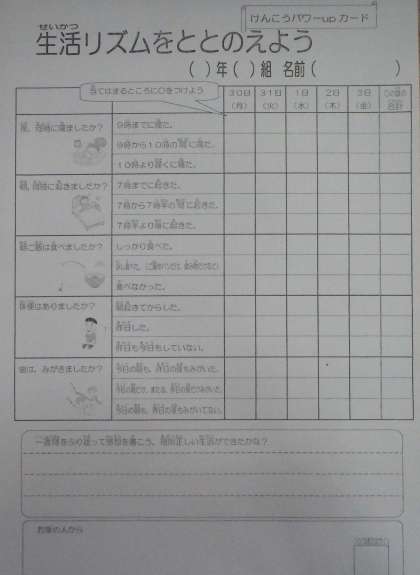 けんこうパワーupカード
せいかつ
生活リズムをととのえよう
( )年( )組 名前( )
当てはまるところに○をつけよう
30日 31日 1日 2日 3日
(月) (火) (水) (木) (金) 合計
夜、何時に寝ましたか？
9時までに寝た。
9時から10時の間に寝た。
10時より遅くに寝た。
朝、何時に起きましたか？
7時までに起きた。
7時から7時半の間に起きた。
7時半より後に起きた。
朝ご飯は食べましたか？
しっかり食べた。
食べなかった。
排便はありましたか？
朝起きてからした。
昨日した。
昨日も今日もしていない。
歯は、みがきましたか？
今日の朝も、昨日の夜もみがいた。
今日の朝だけ、または、昨日の夜だけみがいた。
今日の朝も、昨日の夜もみがいてない。
一週間をふり返って感想を書こう。規則正しい生活ができたかな？
お家の人から